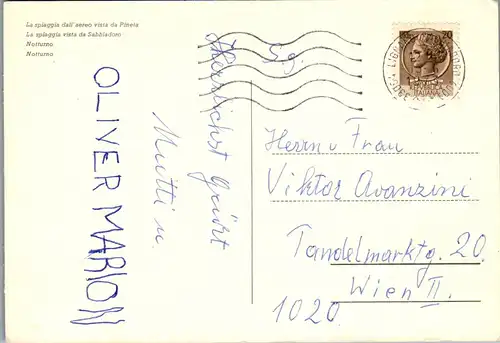 La spiaggia dall'aereo vista da Pineta
La spiaggia vista da Sabbiadoro
Notturno
Notturno
S.g.
Herzlichst Grüßt
Mutti u.
OLIVER MARION
Herrn u Frau
Viktor Avanzini
Tandelmarktg. 20
Wien II.
1020